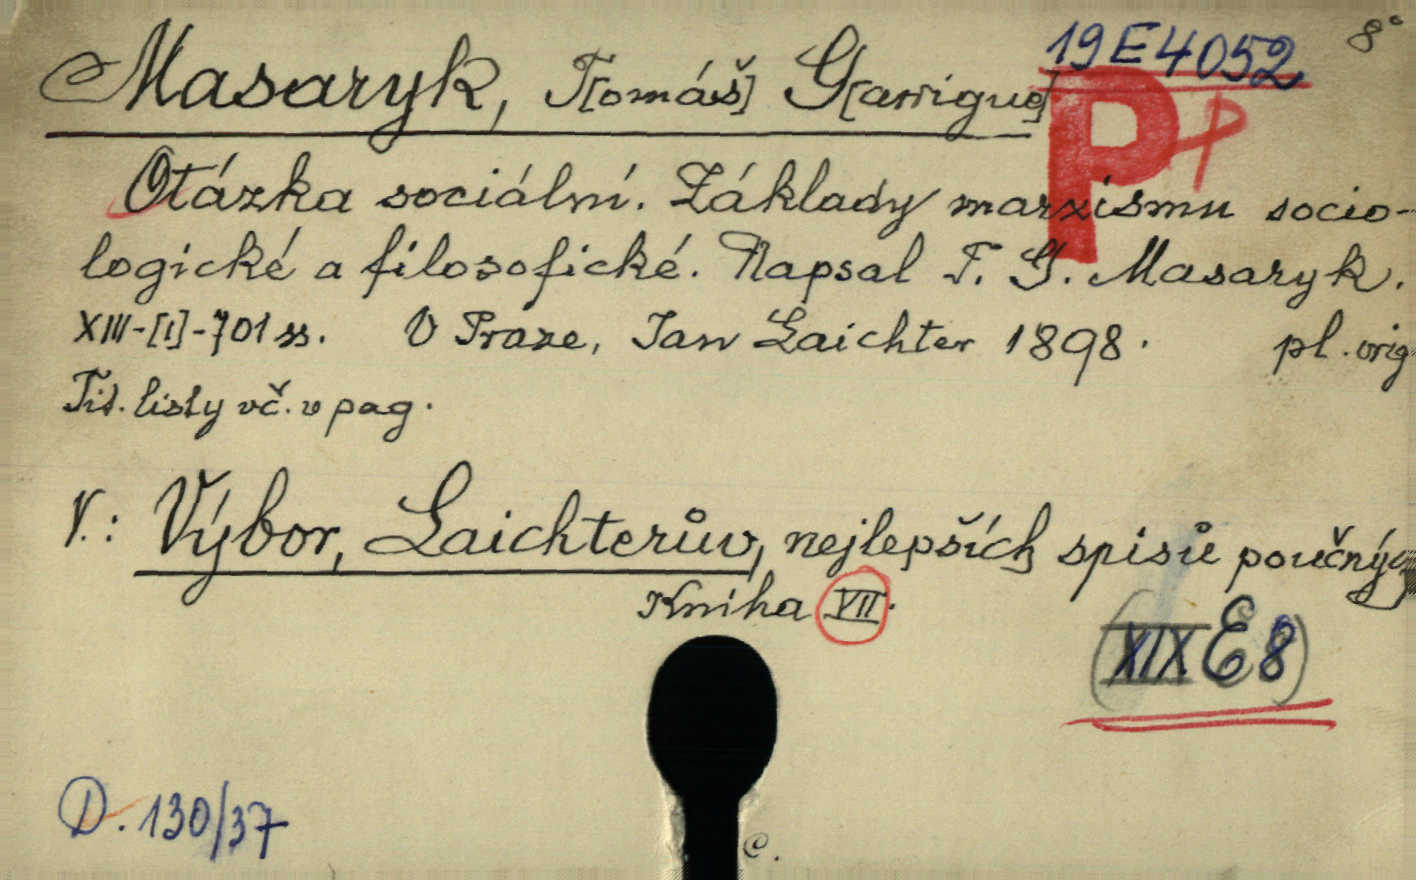 19E4052 8°
Masaryk, T[omáš] G[arrigue]
P P
Otázka sociální. Základy marxismu socio-
logické a filosofické. Napsal T. G. Masaryk.
XIII-[I]-701 ss. V Praze, Jan Laichter 1898. pl. orig
Tit. listy vč. v pag.
V.: Výbor, Laichterův, nejlepších spisů poučných
Kniha VII.
(XIX E 8)
D. 130/37
C.